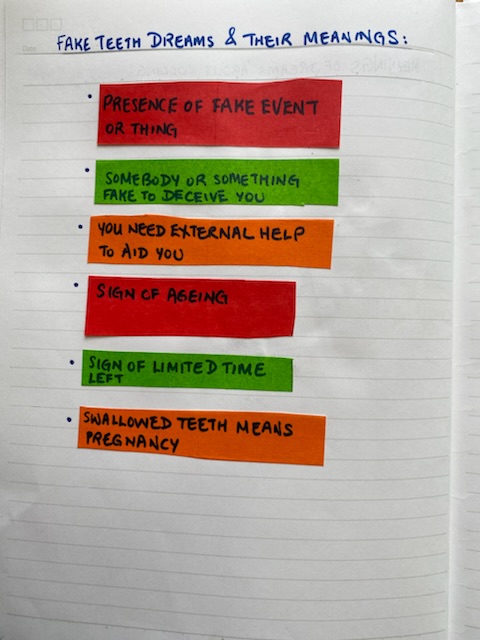 Date
FAKE TEETH DREAMS & THEIR MEANINGS:
• PRESENCE OF FAKE EVENT
OR THING
• SOMEBODY OR SOMETHING
FAKE TO DECEIVE YOU
• YOU NEED EXTERNAL HELP
TO AID YOU
• SIGN OF AGEING
• SIGN OF LIMITED TIME
LEFT
• SWALLOWED TEETH MEANS
PREGNANCY